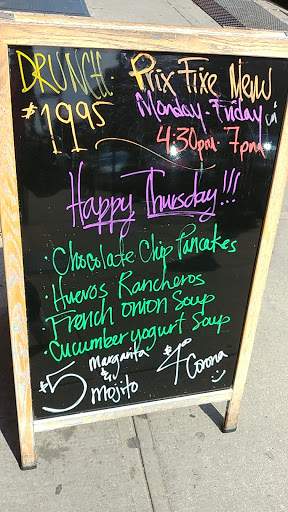 DRUNCH. Prix Fixe Menu
$1995 Monday-Friday
4:30pm-7pm
Happy Thursday!!!
· Chocolate Chip Pancakes
· Huevos Rancheros
· French Onion Soup
· Cucumber yogurt Soup
$5 Margarita & Mojito
$4.00 Corona